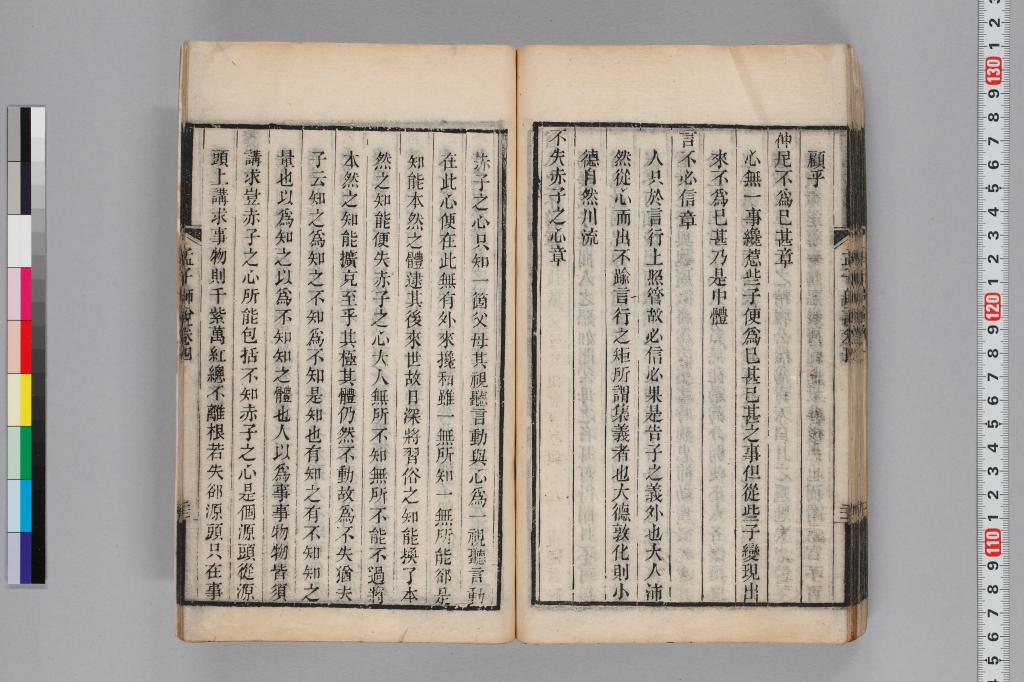 顧乎
仲尼不為已甚章
心無一事纔惹些子便為已甚已甚之事但從些子變現出
來不為已甚乃是中體
言不必信章
人只於言行上照管故必信必果是告子之義外也大人沛
然從心而出不踰言行之矩所謂集義者也大德敦化則小
德自然川流
不失赤子之心章
赤子之心只知一箇父母其視聽言動與心為一視聽言動
在此心便在此無有外來攙和雖一無所知一無所能卻是
知能本然之體逮其後來世故日深將習俗之知能換了本
然之知能便失赤子之心大人無所不知無所不能不過將
本然之知能擴充至乎其極其體仍然不動故為不失猶夫
子云知之為知之不知為不知是知也有知之有不知知之
量也以為知之以為不知知之體也人以為事事物物皆須
講求豈赤子之心所能包括不知赤子之心是個源頭從源
頭上講求事物則千紫萬紅總不離根若失卻源頭只在事
孟子師說卷四